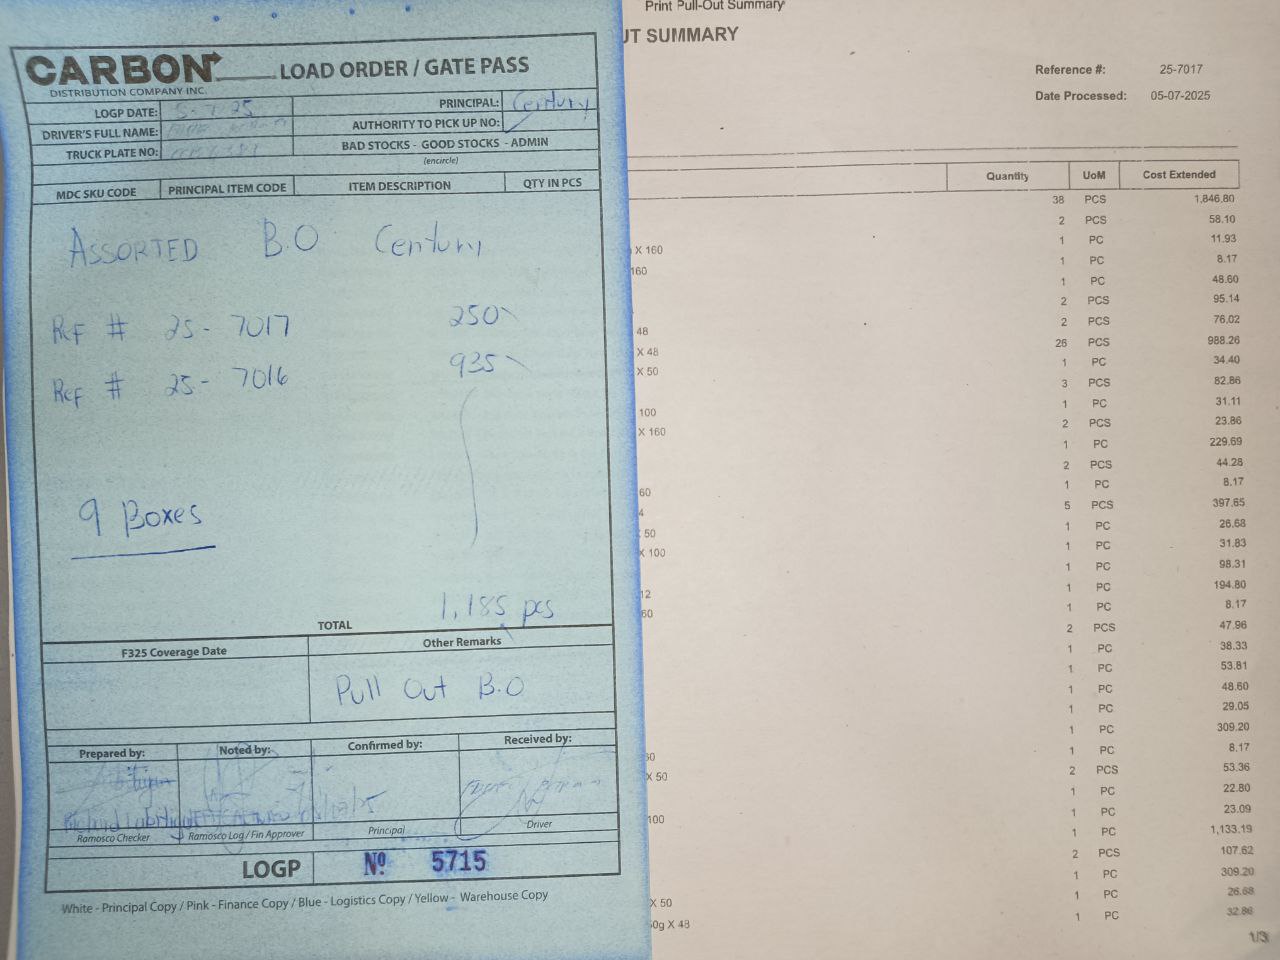 CARBON
DISTRIBUTION COMPANY INC.
LOAD ORDER / GATE PASS
LOGP DATE: 5-7-25
PRINCIPAL: Century
DRIVER'S FULL NAME:
AUTHORITY TO PICK UP NO:
TRUCK PLATE NO:
BAD STOCKS - GOOD STOCKS - ADMIN
(encircle)
MDC SKU CODE PRINCIPAL ITEM CODE ITEM DESCRIPTION QTY IN PCS
ASSORTED B.O Century
Ref # 25-7017 250
Ref # 25-7016 935
9 Boxes
1,185 pcs
TOTAL
F325 Coverage Date Other Remarks
Pull Out B.O
Prepared by: Noted by: Confirmed by: Received by:
Ramosco Checker Ramosco Log / Fin Approver Principal Driver
LOGP Nº 5715
White - Principal Copy / Pink - Finance Copy / Blue - Logistics Copy / Yellow - Warehouse Copy
Print Pull-Out Summary
UT SUMMARY
Reference #: 25-7017
Date Processed: 05-07-2025
Quantity UoM Cost Extended
38 PCS 1,846.80
2 PCS 58.10
X 160 1 PC 11.93
160 1 PC 8.17
1 PC 48.60
2 PCS 95.14
48 2 PCS 76.02
X 48 26 PCS 988.26
X 50 1 PC 34.40
3 PCS 82.86
100 1 PC 31.11
X 160 2 PCS 23.86
1 PC 229.69
2 PCS 44.28
60 1 PC 8.17
4 5 PCS 397.65
50 1 PC 26.68
X 100 1 PC 31.83
1 PC 98.31
12 1 PC 194.80
60 1 PC 8.17
2 PCS 47.96
1 PC 38.33
1 PC 53.81
1 PC 48.60
1 PC 29.05
1 PC 309.20
50 1 PC 8.17
X 50 2 PCS 53.36
1 PC 22.80
100 1 PC 23.09
1 PC 1,133.19
2 PCS 107.62
1 PC 309.20
X 50 1 PC 26.68
50g X 48 1 PC 32.86
1/3